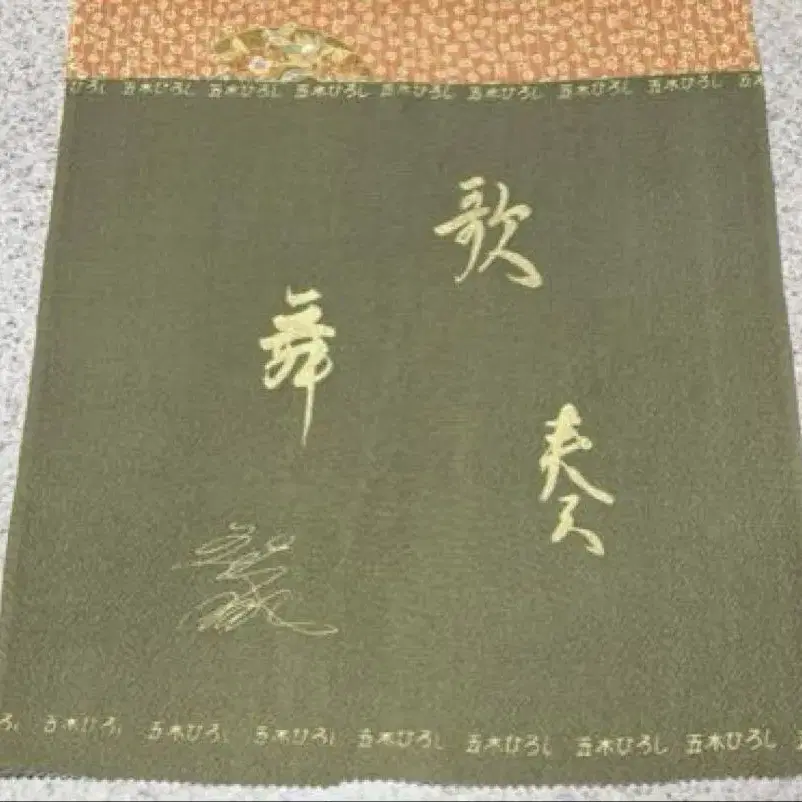 ひろし 五木ひろし 五木ひろし 五木ひろし 五木ひろし 五木ひろし 五木ひろし 五木ひろし 五
歌
舞
奏
ろし 五木ひろし 五木ひろし 五木ひろし 五木ひろし 五木ひろし 五木ひろし 五木ひろし